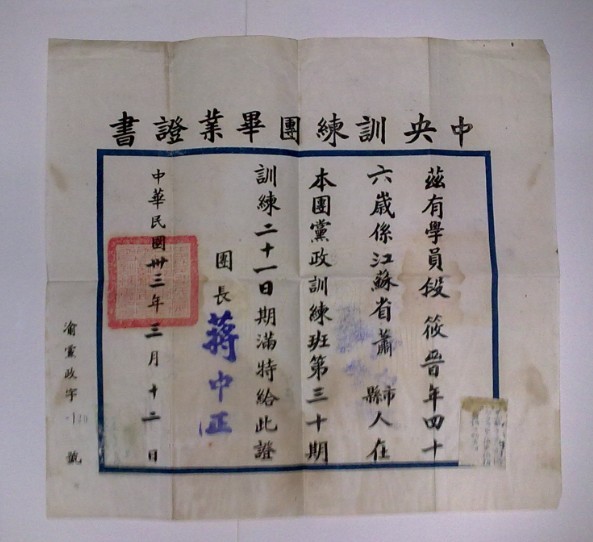 中央訓練團畢業證書
茲有學員段筱晋年四十
六歲係江蘇省蕭市縣人在
本團黨政訓練班第三十期
訓練二十一日期滿特給此證
團長蔣中正
中華民國卅三年三月十二日
渝黨政字 號